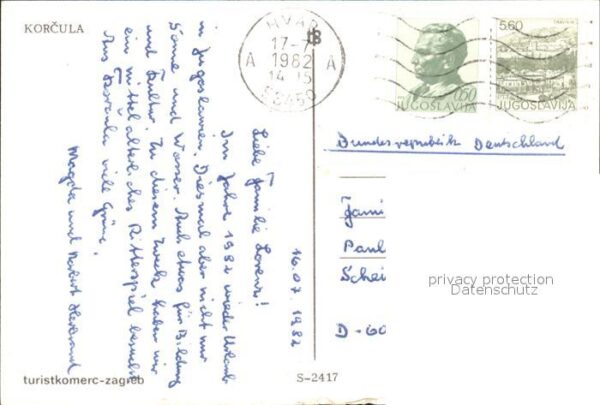 KORČULA
HVAR
17-7
1982
14 15
A A
58450
0,60
JUGOSLAVIJA
5,60
JUGOSLAVIJA
16.07.1982
Liebe Familie Lorenz!
Im Jahre 1982 wieder Urlaub
in Jugoslawien. Diesmal aber nicht nur
Sonne und Wasser. Auch etwas für Bildung
und Kultur. Zu diesem Zweck haben wir
ein mittelalterliches Ritterspiel besucht.
Aus viele Grüße
Magda und Norbert
Bundesrepublik Deutschland
Fami
Paul
Schei
D-60
privacy protection
Datenschutz
turistkomerc-zagreb
S-2417